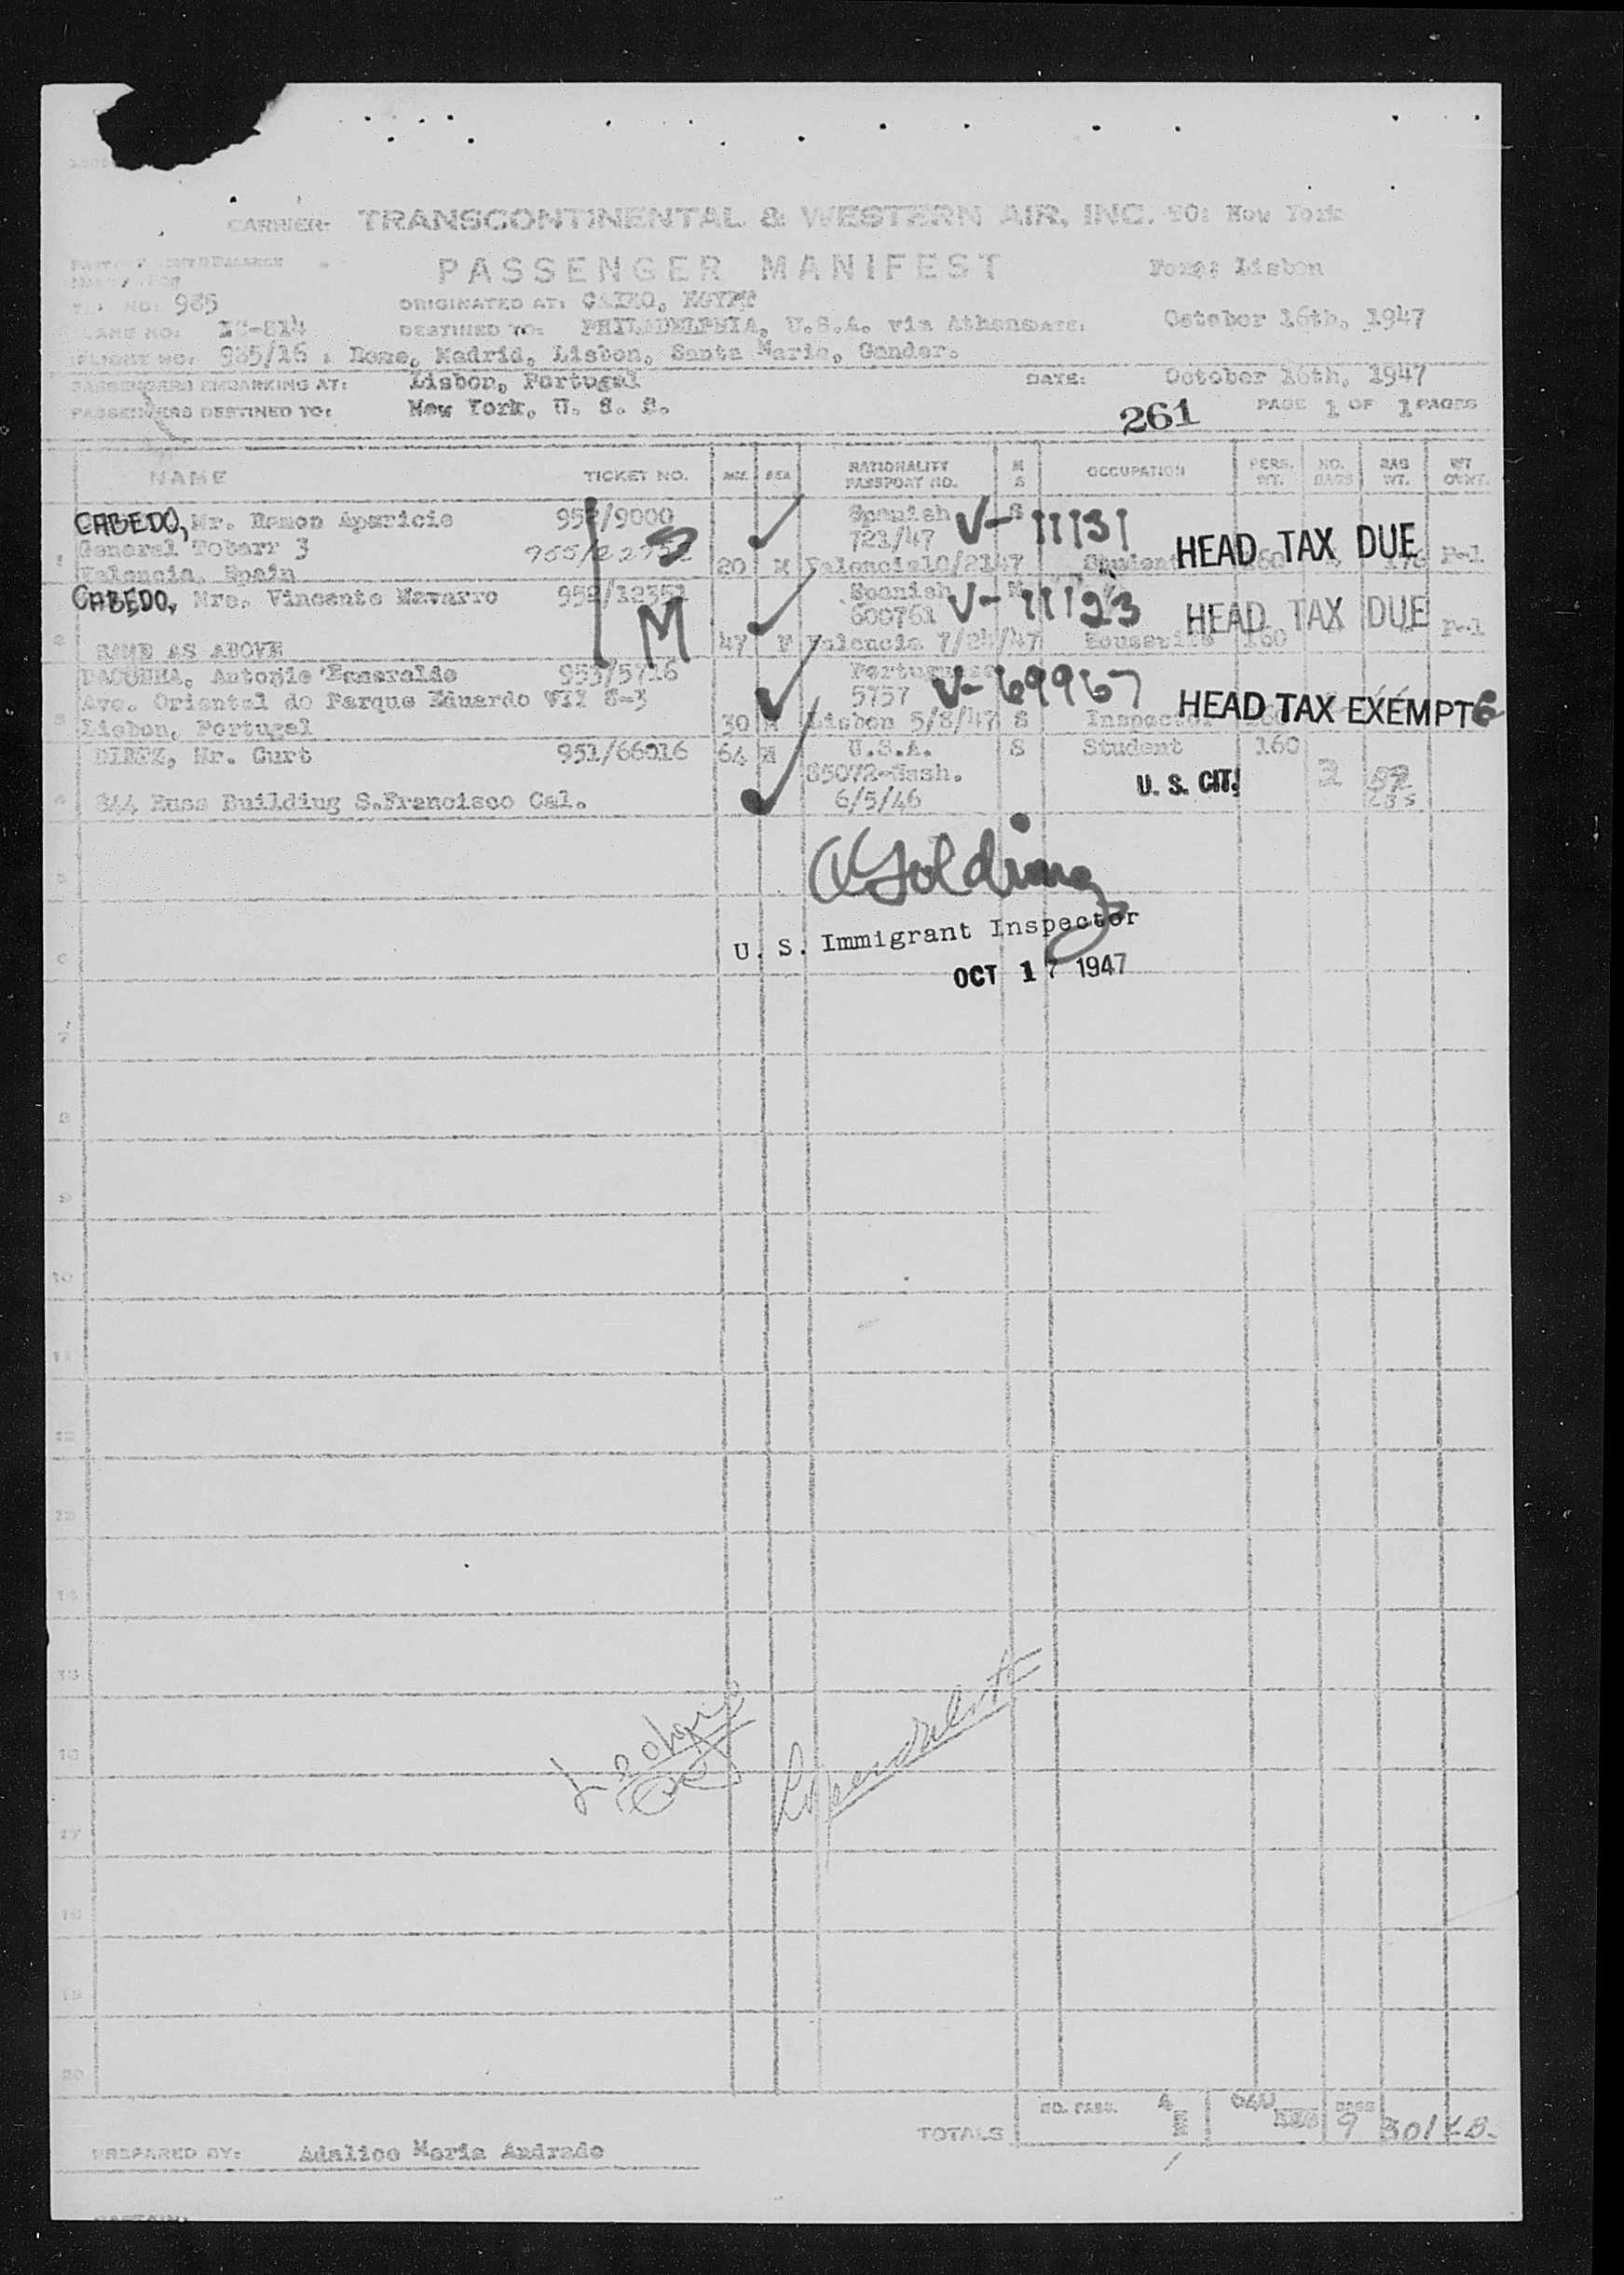 CARRIER: TRANSCONTINENTAL & WESTERN AIR, INC. TO: New York
PASSENGER MANIFEST From: Lisbon
NO: 985 ORIGINATED AT: CAIRO, EGYPT
PLANE NO: DESTINED TO: PHILADELPHIA, U.S.A. via Athens DATE: October 16th, 1947
FLIGHT NO. 985/16 : Rome, Madrid, Lisbon, Santa Maria, Gander.
PASSENGERS EMBARKING AT: Lisbon, Portugal DATE: October 16th, 1947
PASSENGERS DESTINED TO: New York, U. S. S. PAGE 1 OF 1 PAGES
261
NAME TICKET NO. AGE SEX NATIONALITY PASSPORT NO. M S OCCUPATION PERS. WT. NO. BAGS BAG WT.
CABEDO, Mr. Ramon Aparicio 952/9000 S Spanish S V-11131
General Tobarr 3 721/47 HEAD TAX DUE
1 Valencia, Spain 20 M Valencia10/2147 Student
CABEDO, Mrs. Vincente Navarro 952/12351 M Spanish M V-11123
600761 HEAD TAX DUE
2 SAME AS ABOVE 47 F Valencia 7/24/47 Housewife
DACUNHA, Antonio Esmeralde 953/5716 Portuguese V-69967
Ave. Oriental do Parque Eduardo VII 8-3 5757 HEAD TAX EXEMPT 6
3 Lisbon, Portugal 30 M Lisbon 5/8/47 S
DIETZ, Mr. Curt 951/66016 64 M U.S.A. S Student 160
85072-Wash. U. S. CIT.
4 844 Russ Building S.Francisco Cal. 6/5/46
Golding
U. S. Immigrant Inspector
OCT 17 1947
5
6
7
8
9
10
11
12
13
14
15
16
17
18
19
20
TOTALS NO. PASS. 4 BAGS 9 301
PREPARED BY: Adalice Maria Andrade